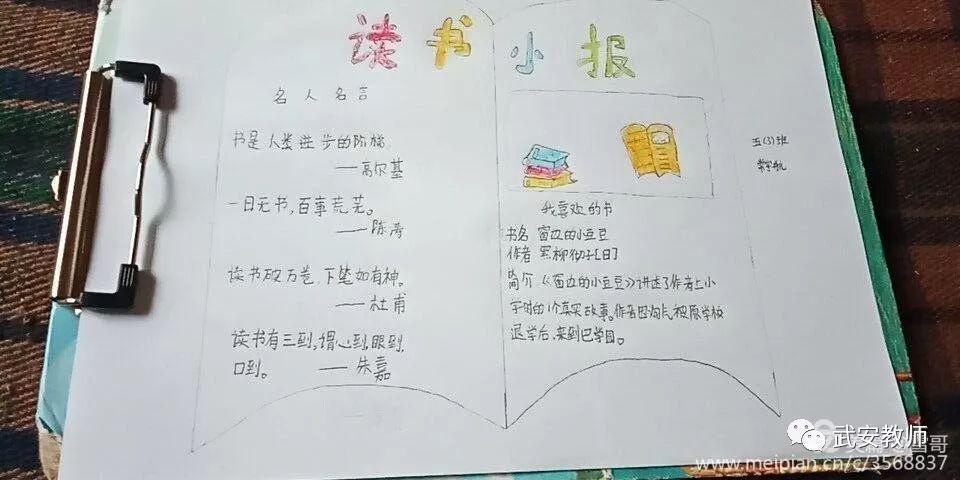 读书小报
名人名言
书是人类进步的阶梯
——高尔基
一日无书，百事荒芜。
——陈涛
读书破万卷，下笔如有神。
——杜甫
读书有三到，谓心到，眼到，
口到。 ——朱嘉
我喜欢的书
书名 窗边的小豆豆
作者 黑柳彻子[日]
简介《窗边的小豆豆》讲述了作者上小
学时的1个真实故事。作者因淘气被原学校
退学后，来到巴学园。
五(3)班
武安教师
www.meipian.cn/c/3568837